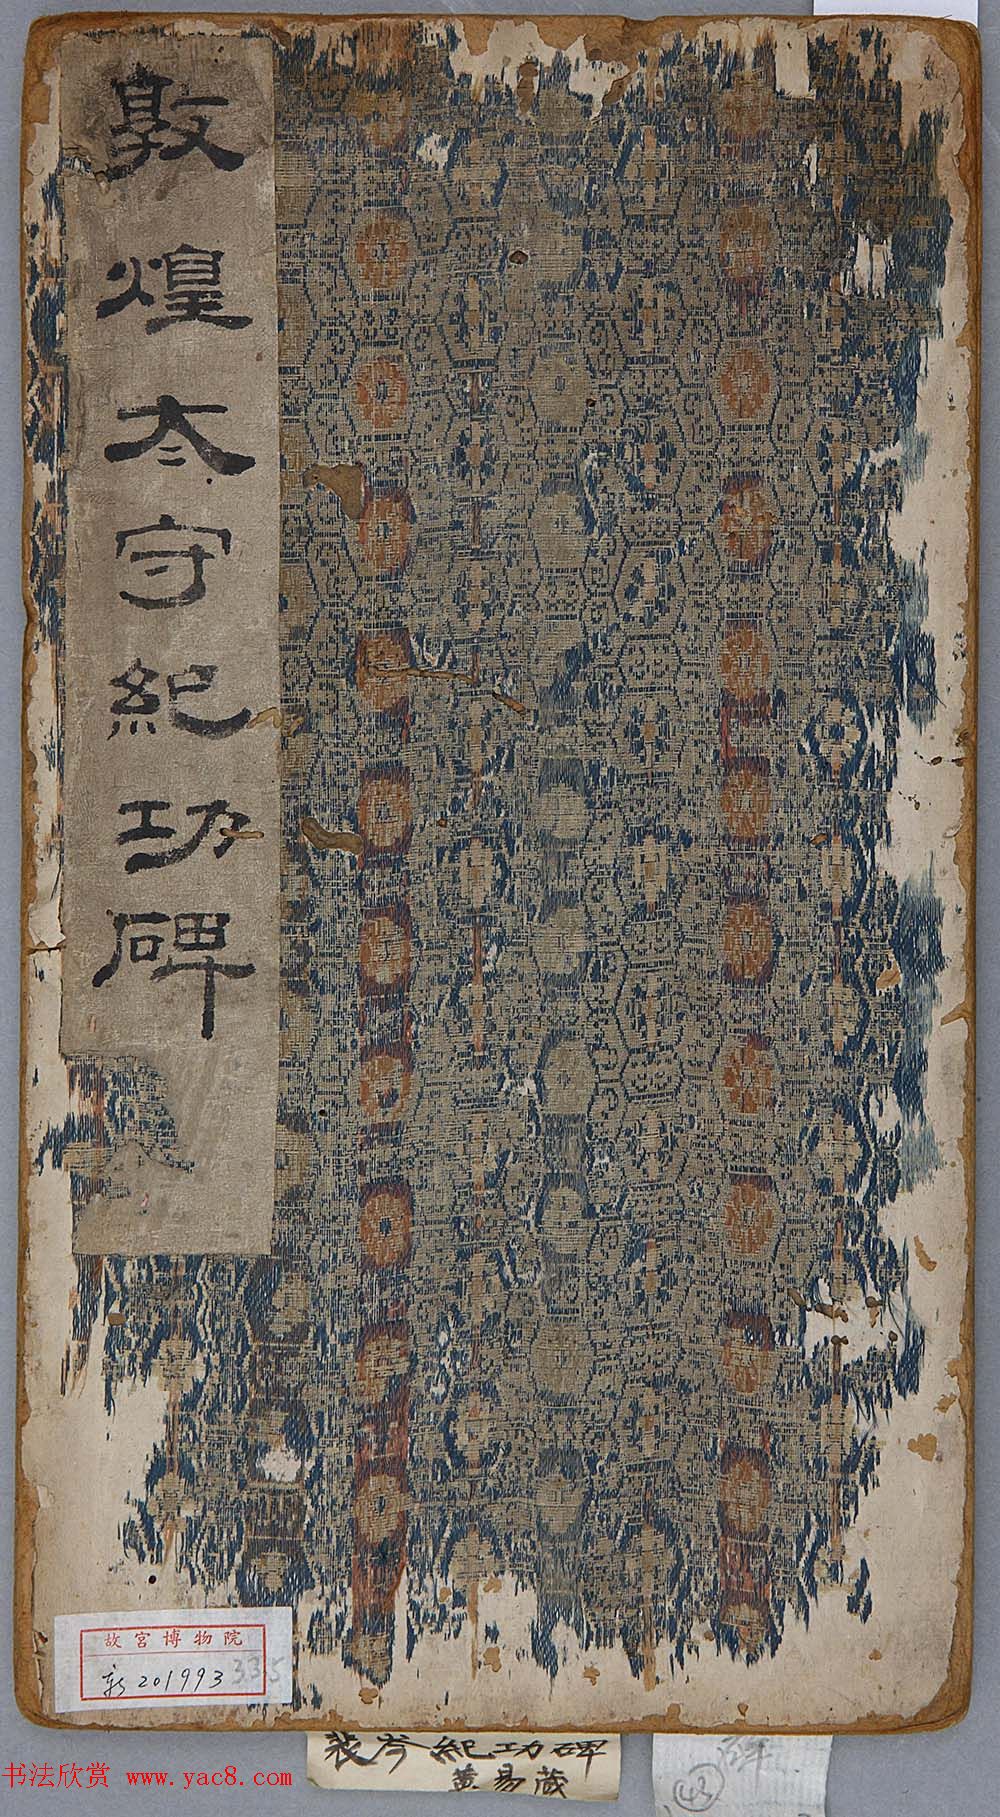 敦煌太守紀功碑
故宮博物院
新201993
335
裴岑紀功碑
黄易蔵
43
书法欣赏 www.yac8.com